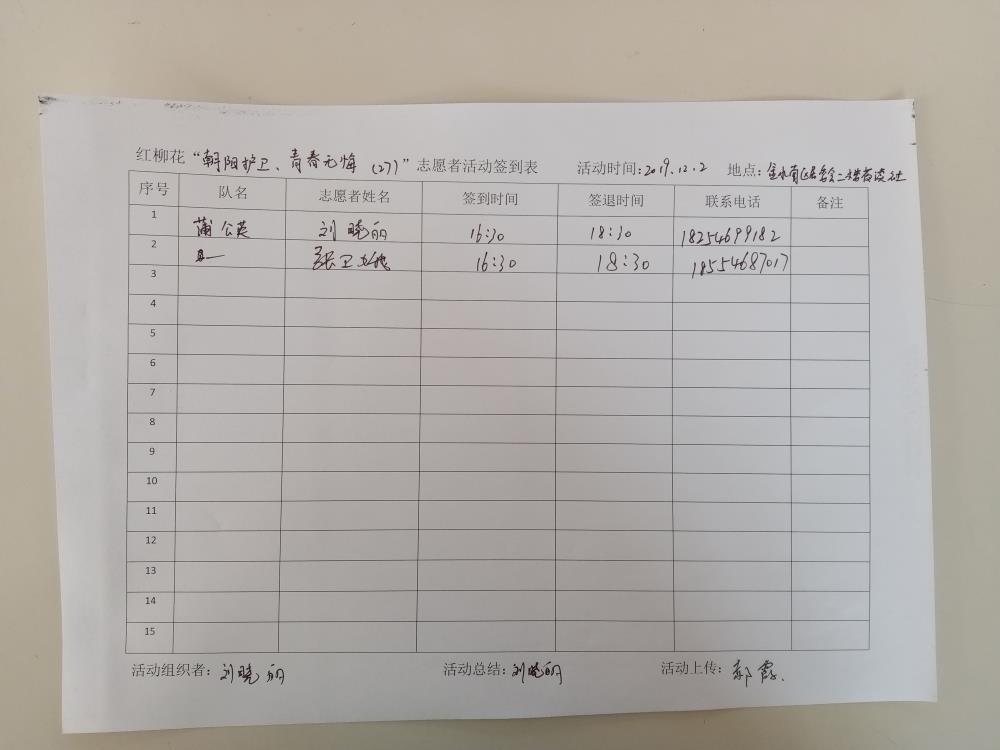 红柳花“朝阳护卫、青春无悔（27）”志愿者活动签到表 活动时间:2019.12.2 地点:
序号 队名 志愿者姓名 签到时间 签退时间 联系电话 备注
1 蒲公英 刘晓丽 16:30 18:30 18254699182
2 张卫 16:30 18:30 18554687017
3
4
5
6
7
8
9
10
11
12
13
14
15
活动组织者:刘晓丽 活动总结:刘晓丽 活动上传:郭霞.